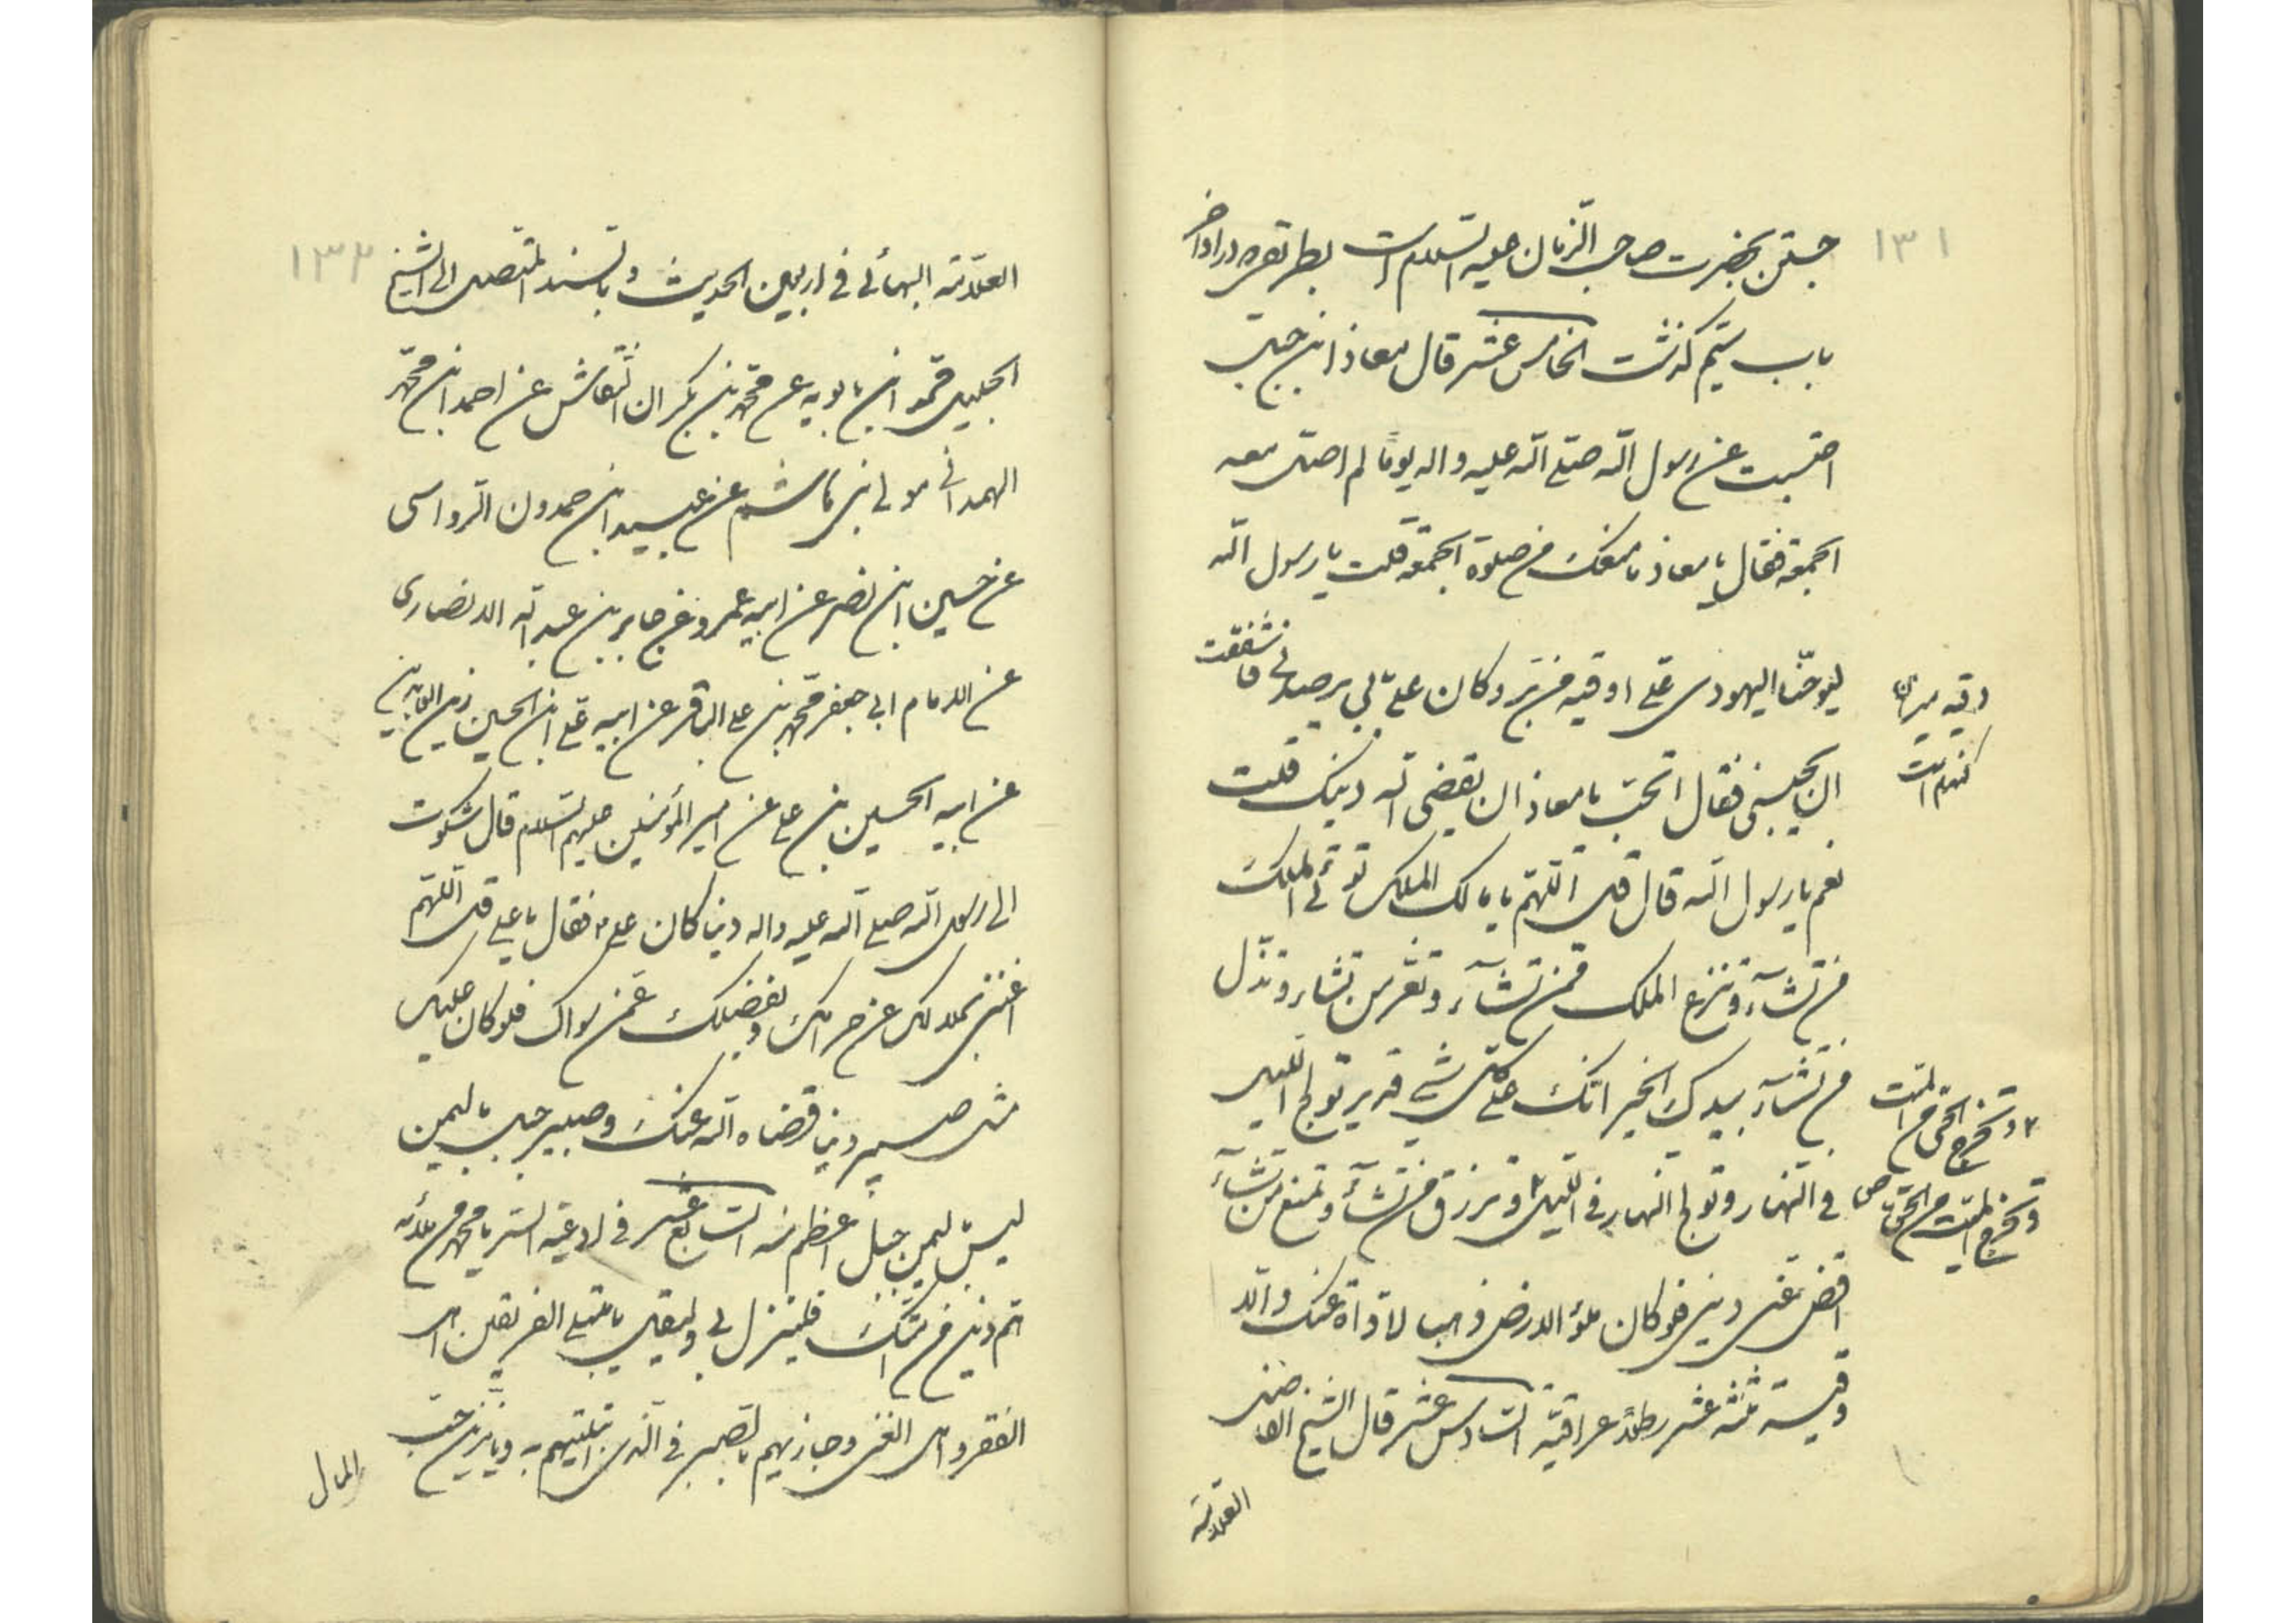 ١٣١
جستن بحضرت صاحب الزمان علیه السلام است بطریقیکه در اواخر
باب سیّم گذشت الخامس عشر قال معاذ ابن جبل
احتبست عن رسول الله صلی الله علیه واله یوماً لم اصلّ معه
الجمعة فقال یا معاذ ما منعک من صلوة الجمعة قلت یا رسول الله
لیوحنا الیهودی علیّ اوقیة من تبر وکان علی بابی یرصدنی فاشفقت
ان یحبسنی فقال اتحبّ یا معاذ ان یقضی الله دینک قلت
نعم یا رسول الله قال قل اللّهمّ یا مالک الملک تؤتی الملک
من تشآء وتنزع الملک ممّن تشآء وتعزّ من تشاء وتذلّ
من تشآء بیدک الخیر انّک علی کلّ شئ قدیر تولج اللیل
في النهار وتولج النهار في اللیل وترزق من تشآء وتمنع من تشآء
اقض عنّی دینی فلو کان ملؤ الارض ذهبا لادّاه عنک
وقیسته ثلثه عشر رطلاً عراقیّة السادس عشر قال الشیخ الفاضل
العلامة
گندم است
وتخرج الحیّ من المیّت
وتخرج المیّت من الحیّ
١٣٢
العلّامة البهائی فی اربعین الحدیث وبالسند المتصل الی الشیخ
الجلیل محمد ابن بابویه عن محمّد بن بکران النقاش عن احمد ابن محمّد
الهمدانی مولی بنی هاشم عن عبید ابن حمدون الرواسی
عن حسین ابن نصر عن ابیه عن عمرو عن جابر بن عبد الله الانصاری
عن الامام ابی جعفر محمّد بن علی الباقر عن ابیه علی ابن الحسین زین العابدین
عن ابیه الحسین بن علی عن امیر المؤمنین علیهم السلام قال شکوت
الی رسول الله صلی الله علیه واله دینا کان علیّ فقال یا علی قل اللّهمّ
اغننی بحلالک عن حرامک وبفضلک عمّن سواک فلو کان علیک
مثل صبیر دینا قضاه الله عنک وصبیر جبل بالیمن
لیس بالیمن جبل اعظم منه السابع عشر فی ادعیة السر یا محمد من ملأه
همّ دین من امّتک فلینزل بی ولیقل یا مبتلی الفریقین اهل
الفقر واهل الغنی وجازیهم بالصبر فی الذی ابتلیتهم به ویا مزیّن حبّ
المال